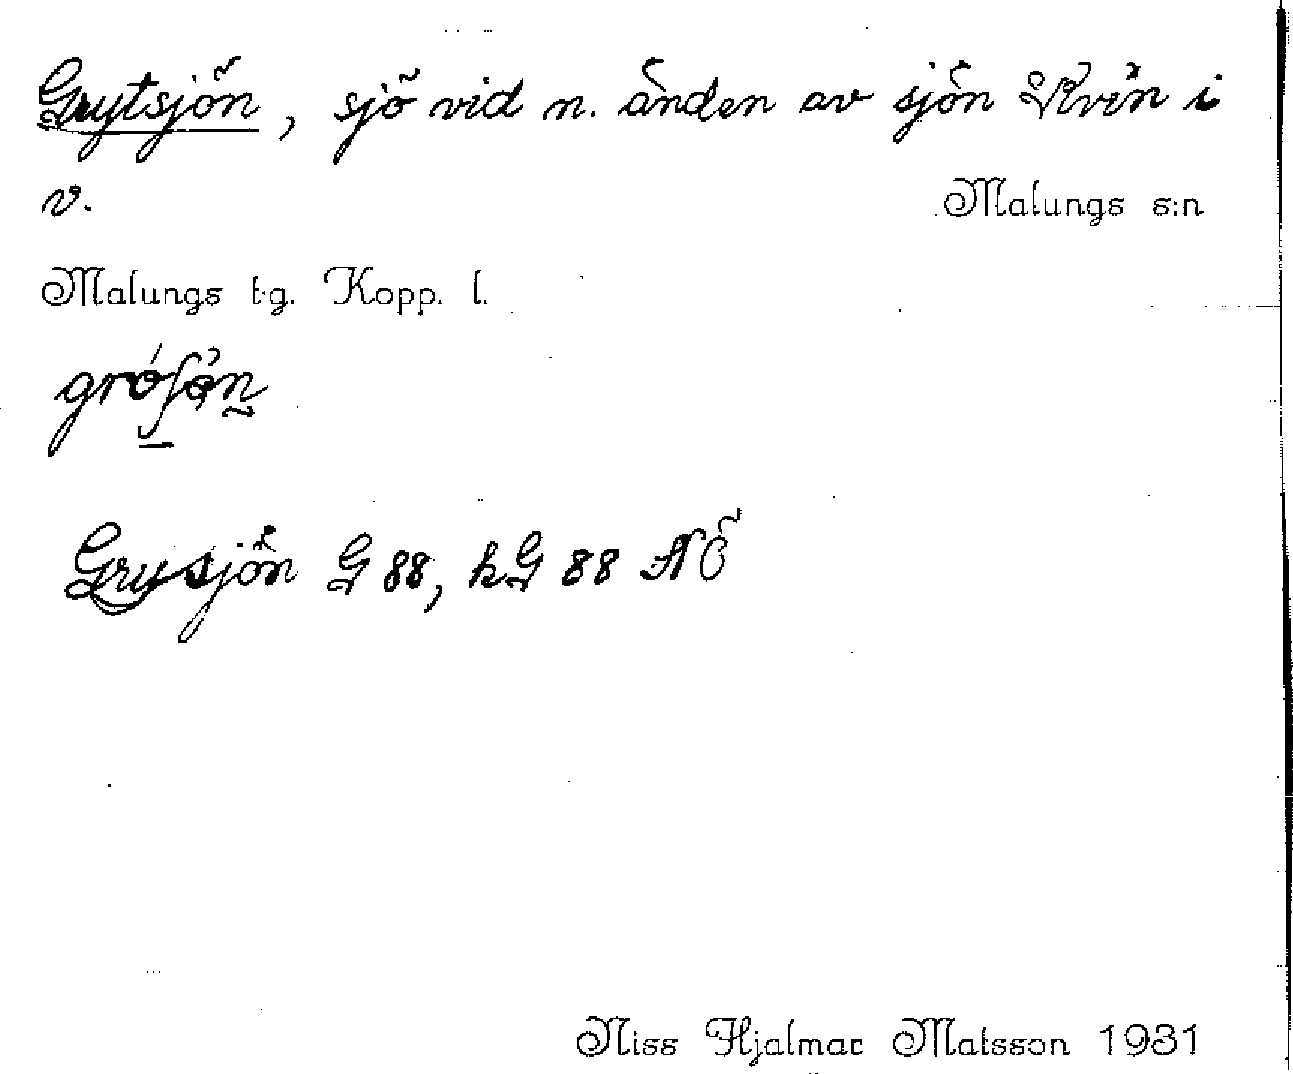 Grytsjön, sjö vid n. änden av sjön Kvin i
v. Malungs s:n
Malungs tg. Kopp. l.
Grysjön G 88, kG 88 NÖ
Niss Hjalmar Matsson 1931